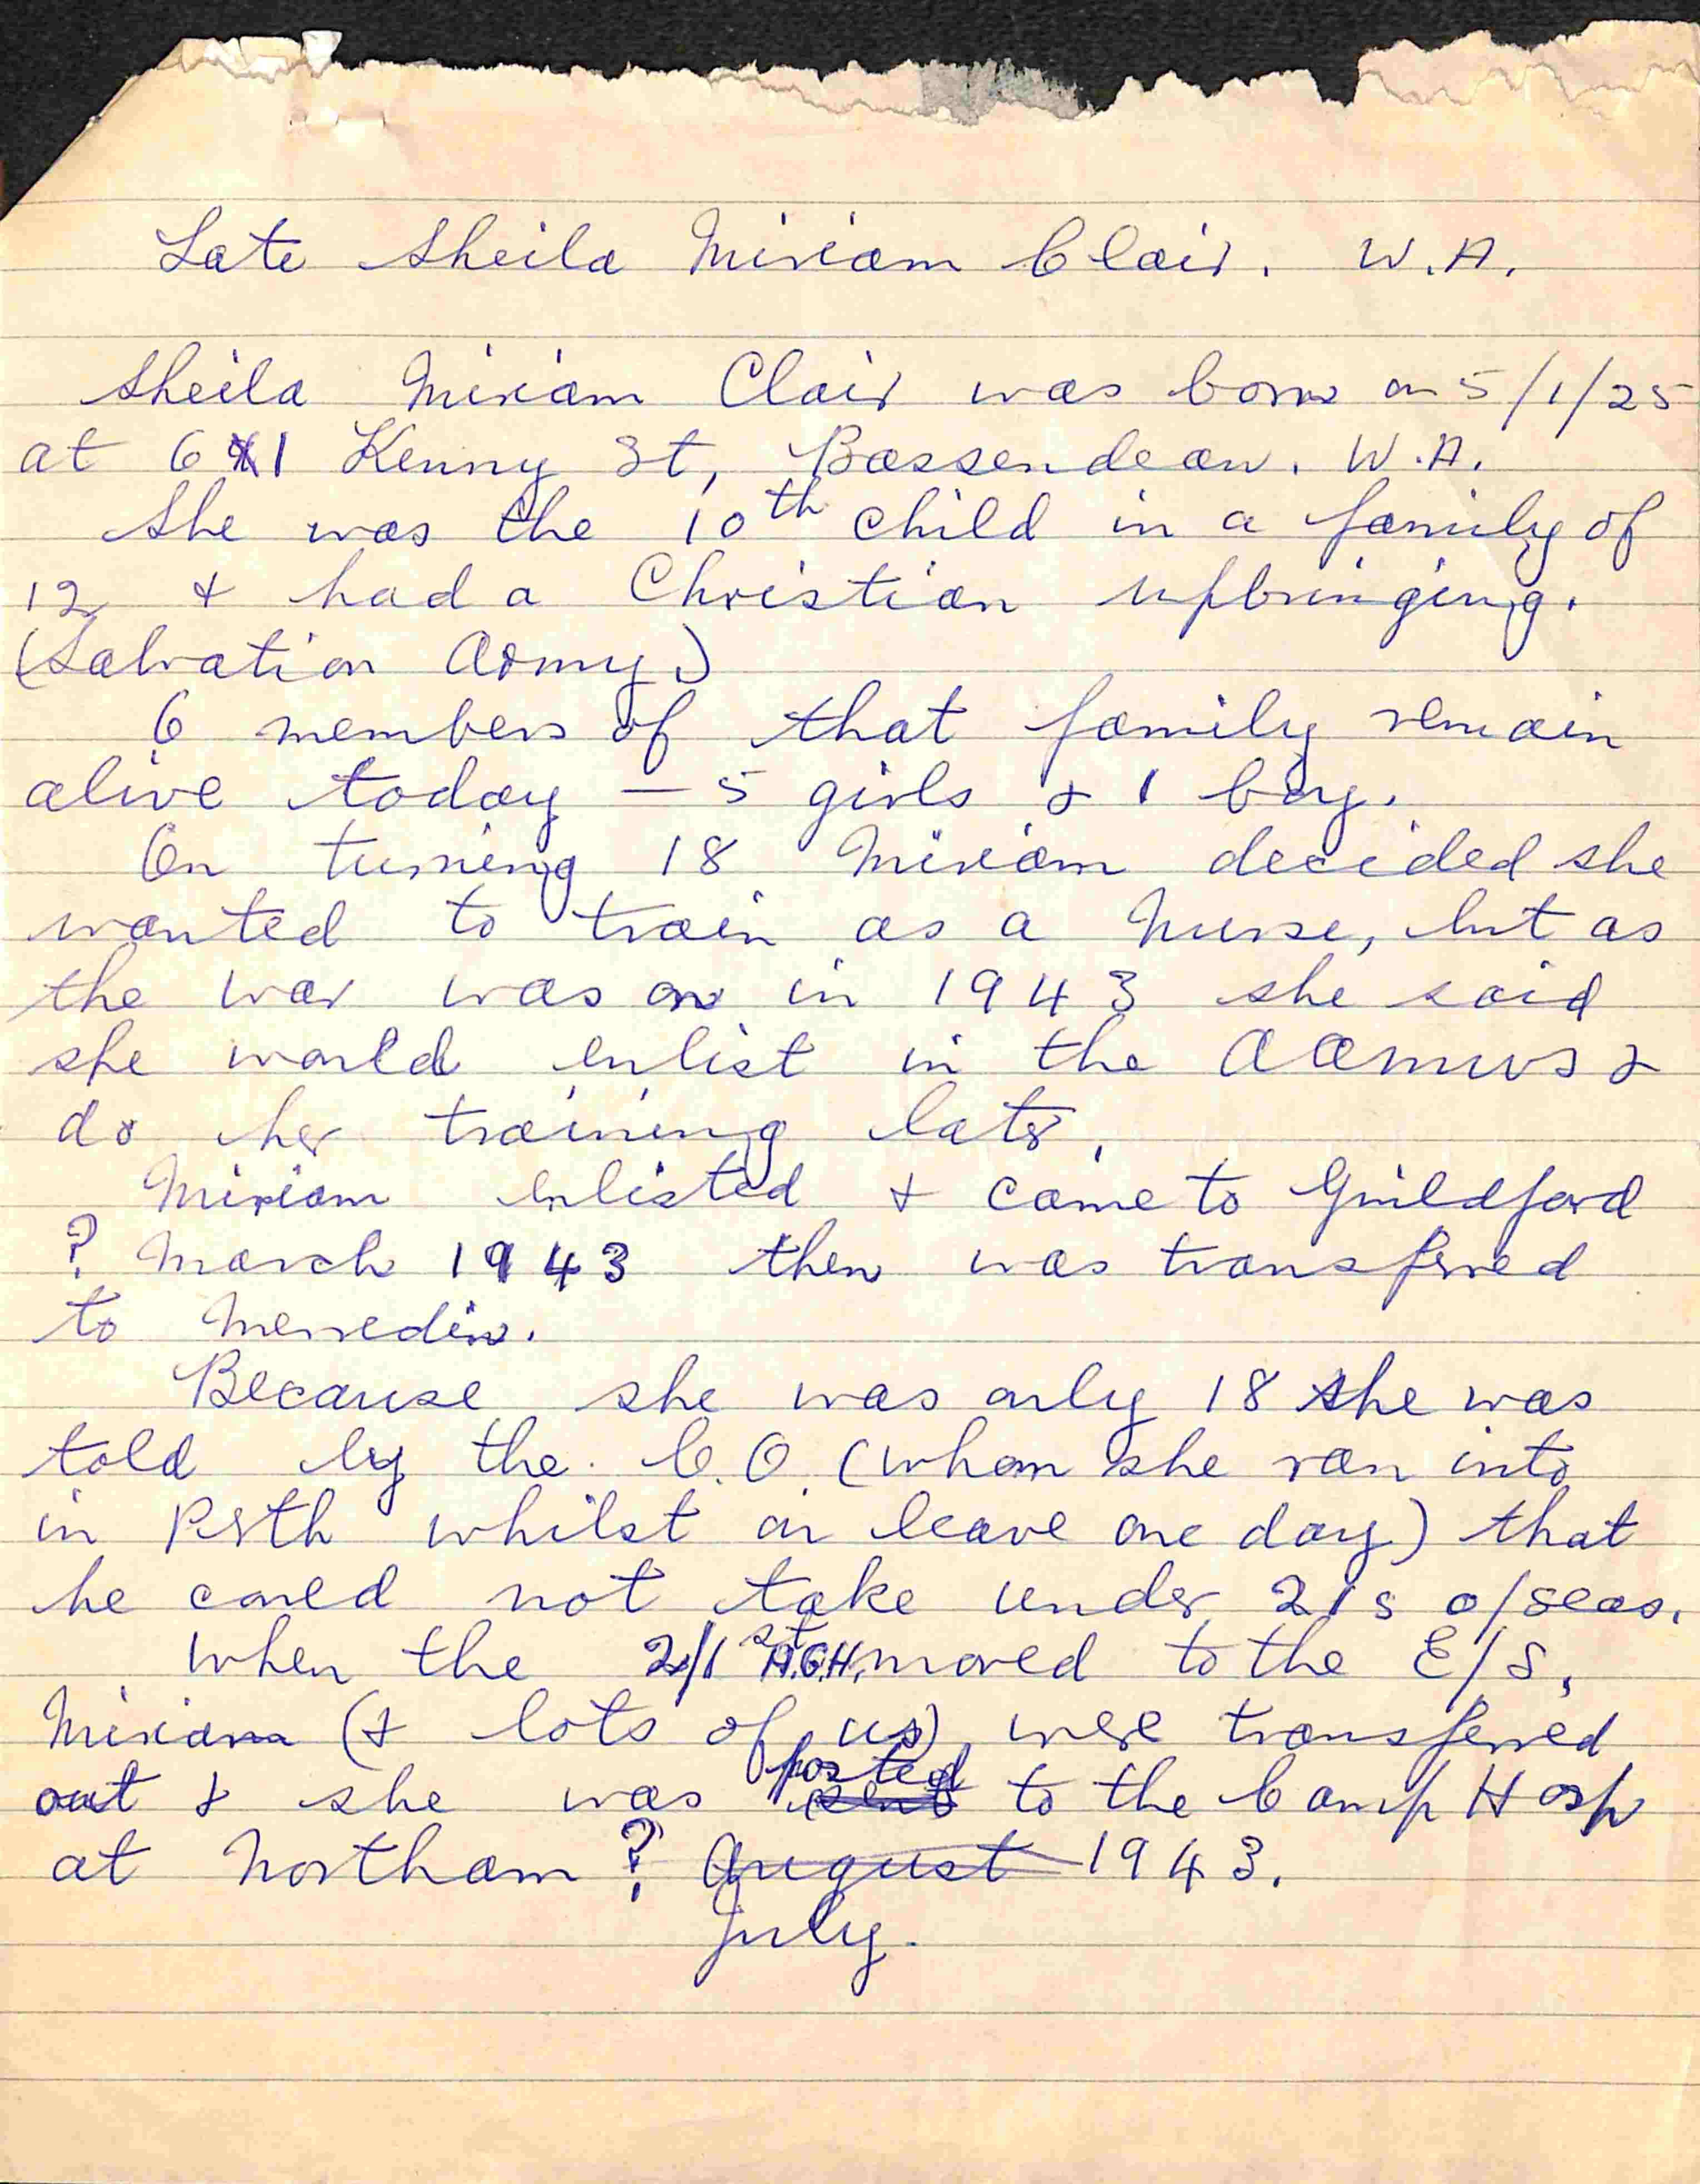 Late Sheila Miriam Clair. W.A.
Sheila Miriam Clair was born on 5/1/25
at 61 Kenny St, Bassendean. W.A.
She was the 10th child in a family of
12 & had a Christian upbringing.
(Salvation Army)
6 members of that family remain
alive today – 5 girls & 1 boy.
On turning 18 Miriam decided she
wanted to train as a Nurse, but as
the war was on in 1943 she said
she would enlist in the AAMWS &
do her training later.
Miriam enlisted & came to Guildford
? March 1943 then was transferred
to Merredin.
Because she was only 18 she was
told by the C.O. (whom she ran into
in Perth whilst on leave one day) that
he could not take under 21s o/seas.
When the 2/1st A.G.H. moved to the E/S,
Miriam (& lots of us) were transferred
out & she was sent posted to the Camp Hosp
at Northam ? August 1943.
July.